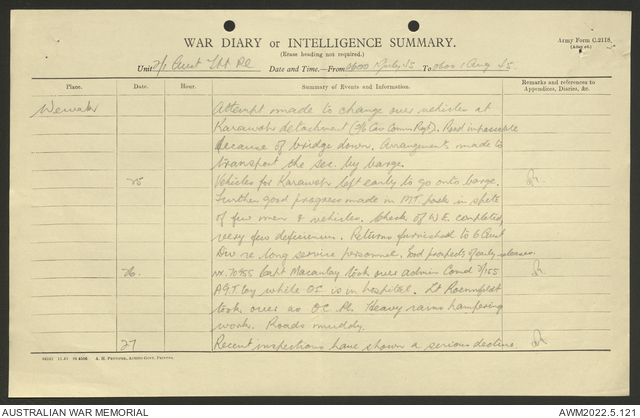 WAR DIARY or INTELLIGENCE SUMMARY.
(Erase heading not required.)
Army Form C.2118.
Unit 2/1 Aust Date and Time.—From 0600 1 July 45 To 0600 1 Aug 45.
Place. Date. Hour. Summary of Events and Information. Remarks and references to Appendices, Diaries, &c.
Wewak Attempt made to change over vehicles at
Karawop detachment (2/6 Cav Comm Regt). Road impassable
because of bridge down. Arrangements made to
transport the sec by barge.
25 Vehicles for Karawop left early to go onto barge.
Further good progress made in MT park in spite
of few men & vehicles. Check of W.E. completed
very few deficiencies. Returns furnished to 6 Aust
Div re long service personnel. Good prospects of early releases
26. NX 70955 Capt Macaulay took over admin Comd 2/155
AGT Coy while OC is in hospital. Lt
took over as O.C. Pl. Heavy rains hampering
work. Roads muddy.
27 Recent inspections have shown a serious decline
A. H. PETTIFER, ACTING GOVT. PRINTER.
AUSTRALIAN WAR MEMORIAL
AWM2022.5.121